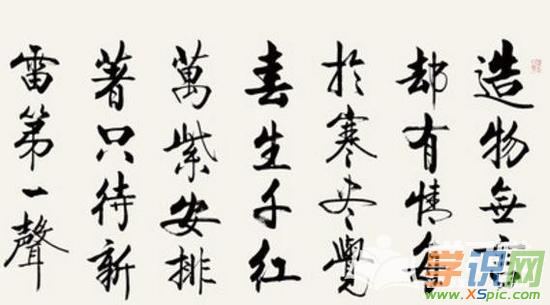 造物無言
却有情每
於寒尽覺
春生千紅
萬紫安排
著只待新
雷第一聲
学识网
www.XSpic.com